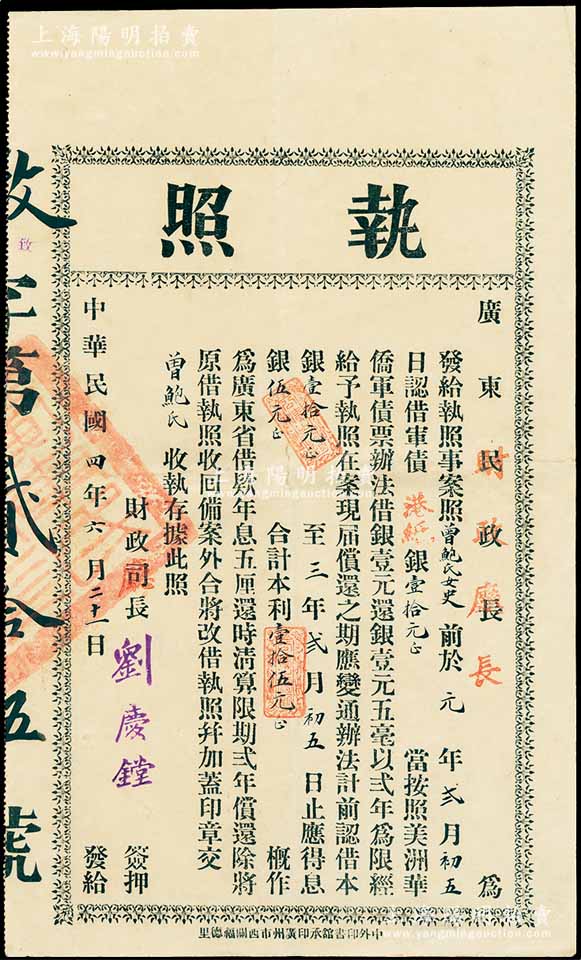 上海陽明拍賣
www.yangmingauction.com
執照
廣東民政長
財政廳長
為
發給執照事案照曾鮑氏女史前於元年弍月初五
日認借軍債港紙銀壹拾元正當按照美洲華
僑軍債票辦法借銀壹元還銀壹元五毫以弍年為限經
給予執照在案現屆償還之期應變通辦法計前認借本
銀壹拾元正至三年弍月初五日止應得息
銀伍元正合計本利壹拾伍元正概作
為廣東省借欵年息五厘還時清算限期弍年償還除將
原借執照收回備案外合將改借執照幷加蓋印章交
曾鮑氏收執存據此照
財政司長劉慶鏜簽押
中華民國四年六月二十一日發給
改字第貳拾五號
改
中外印書館承印廣州市西關福德里